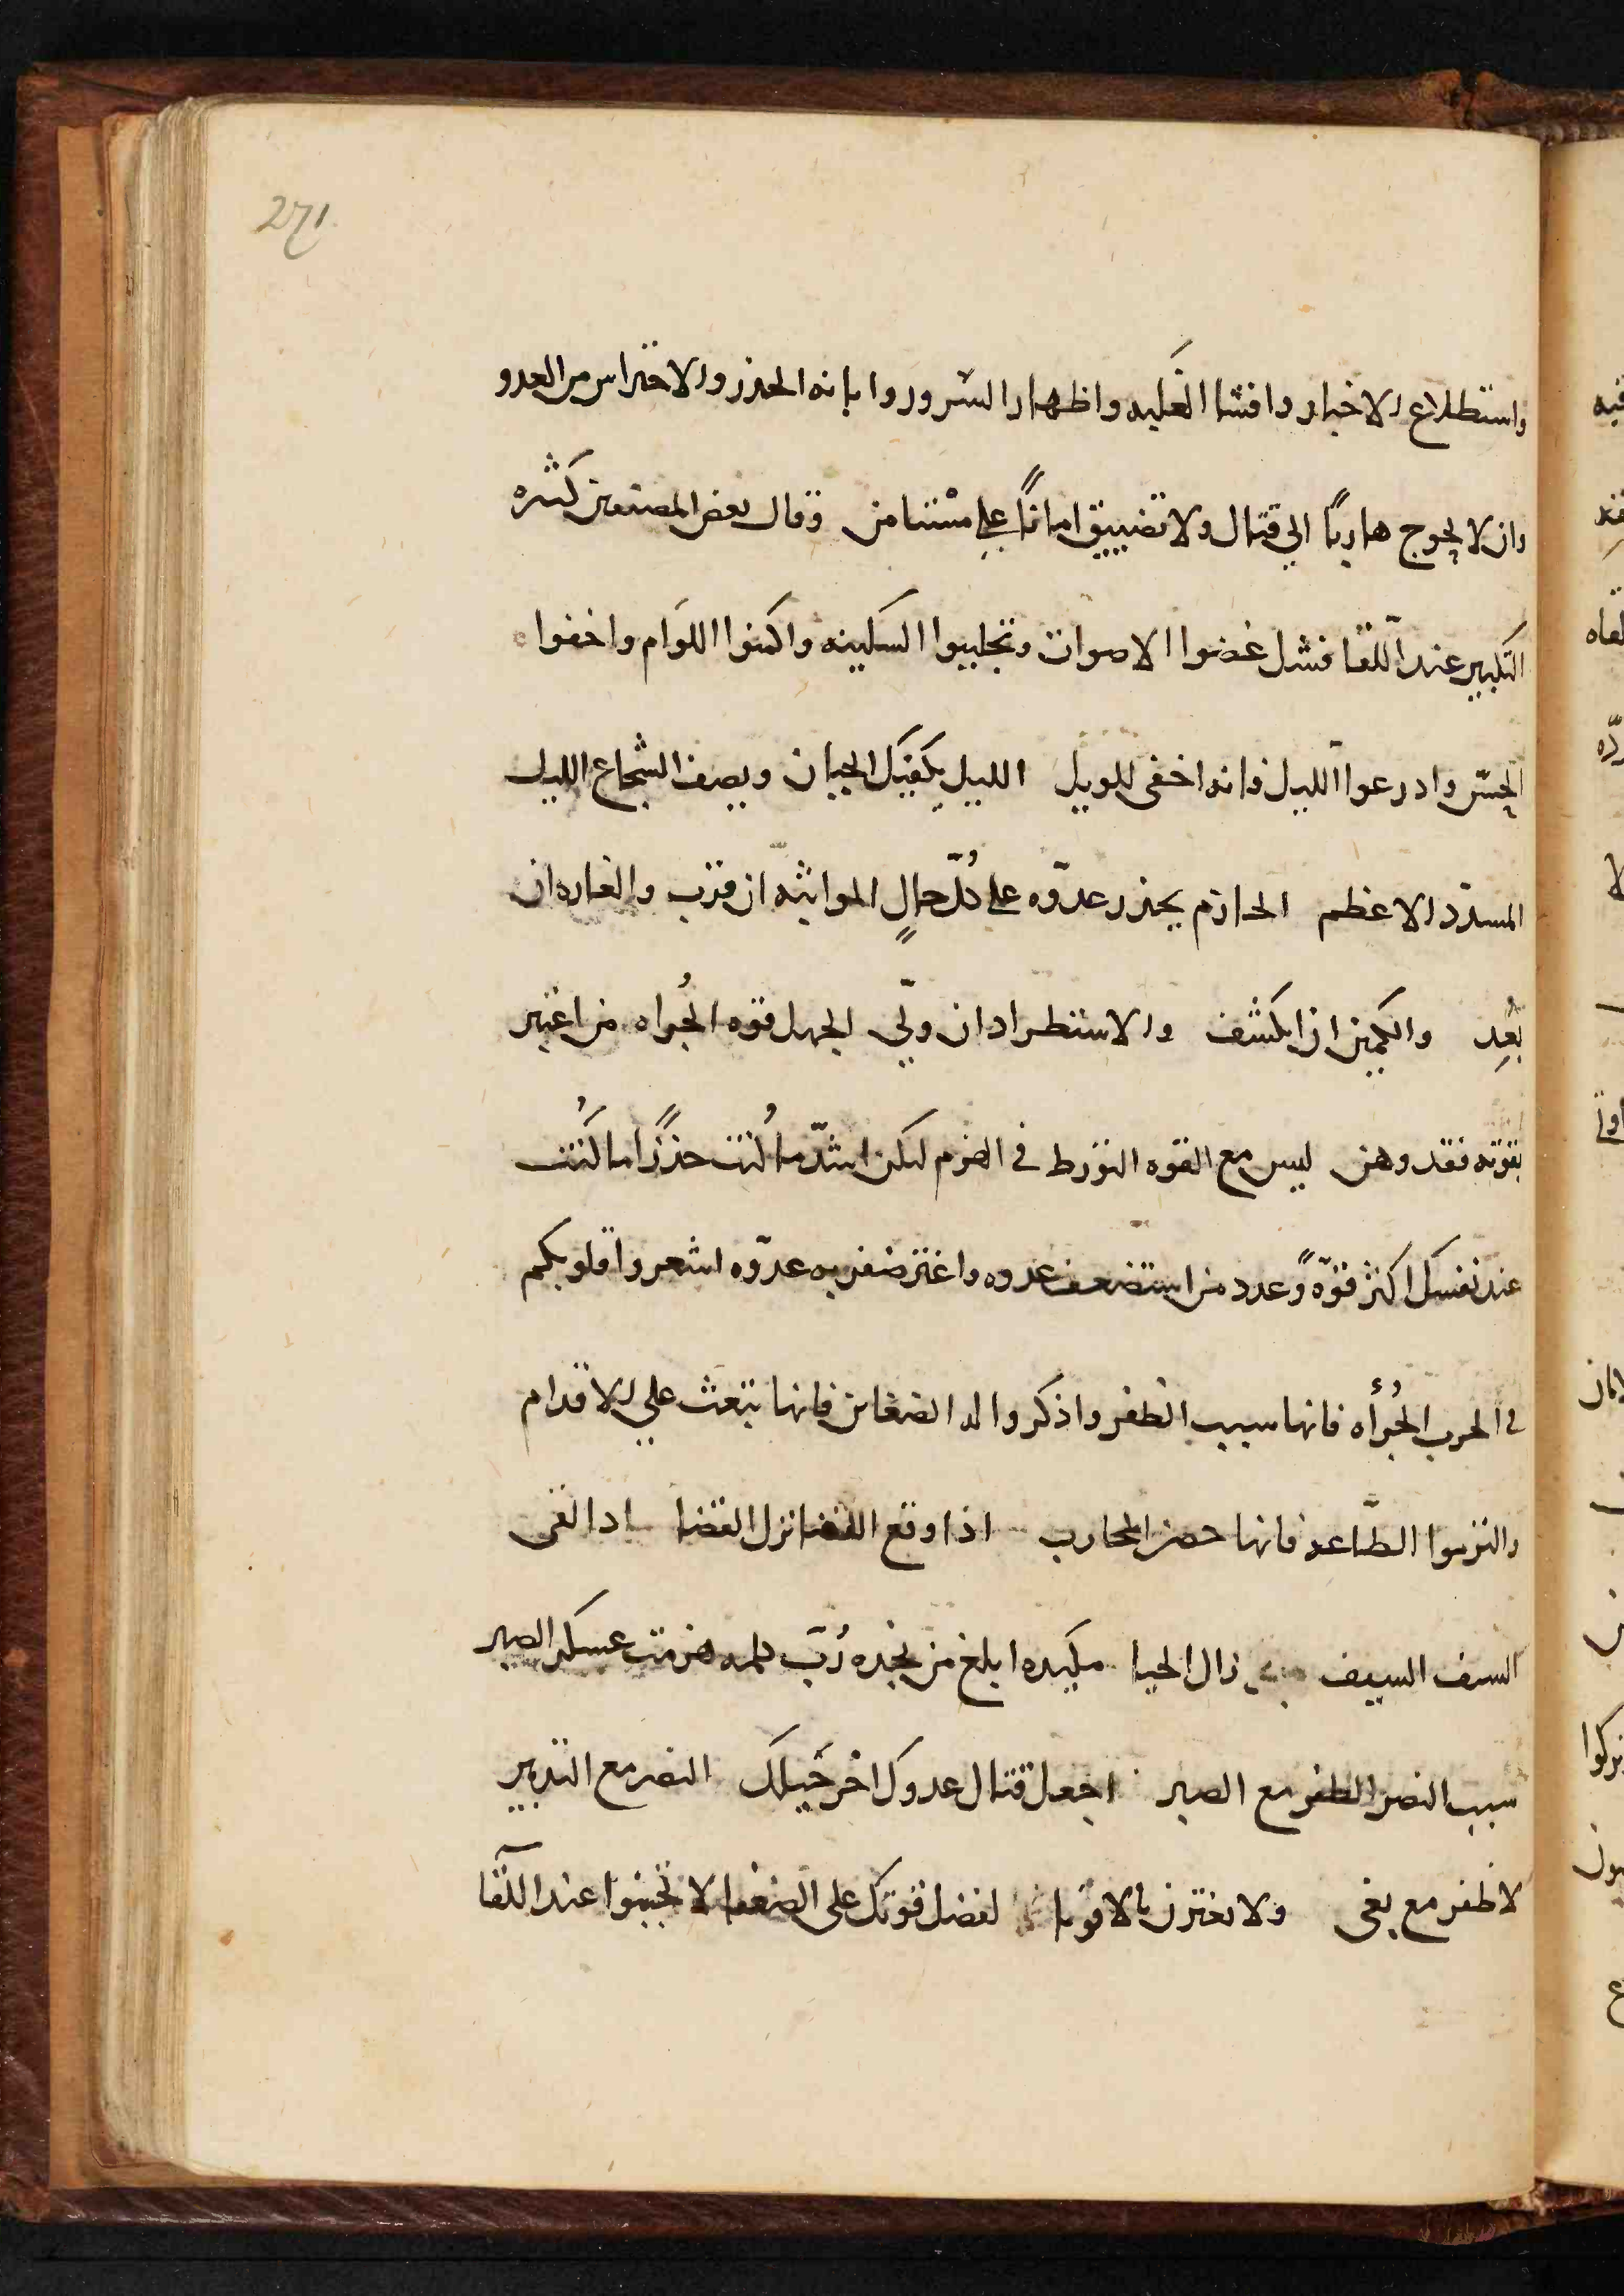 271
واستطلاع الاخبار وافشا الغلبه واظهار السرور واماته الحذر والاحتراس من العدو
وان لا يحوج هاربًا الي قتال ولا تضييق امانًا علي مستنامن وقال بعض المصنفين كثره
التكبير عند اللقا فشل غضوا الاصوات وتجلببوا السكينه واكمنوا اللوام واخفوا
الحسّ وادرعوا الليل فانه اخفى للويل الليل يكفيك الجبان ويصف الشجاع الليل
المسدّد الاعظم الحازم يحذر عدوّه على كُلّ حالٍ المواثبه ان قرب والغاره ان
بعُد والكمين ان انكشف والاستطراد ان ولّي الجهل قوه الجُراه من اغتر
بقوته فقد وهن ليس مع القوه التورط في الهزم ليكن اشدّ ما كُنت حذرًا ما كُنت
عند نفسك اكثر قوّهً وعدد من استضعف عدوه واغتر ضفر به عدوّه اشعروا قلوبكم
في الحرب الجُرأه فانها سبب الظفر واذكروا الضغاين فانها تبعث علي الاقدام
والتزموا الطّاعه فانها حصن المحارب اذا وقع اللقا نزل القضا اذا لقى
السيف السيف زال الحيا مكيده ابلغ من نجده رُبّ كلمه هزمت عسكر الصبر
سبب النصر الظفر مع الصبر اجعل قتال عدوك اخر حَيلك النصر مع التدبير
لا ظفر مع بغى ولا تغترن بالاقويا لفضل قوتك على الضعفا لا تجبنوا عند اللقا